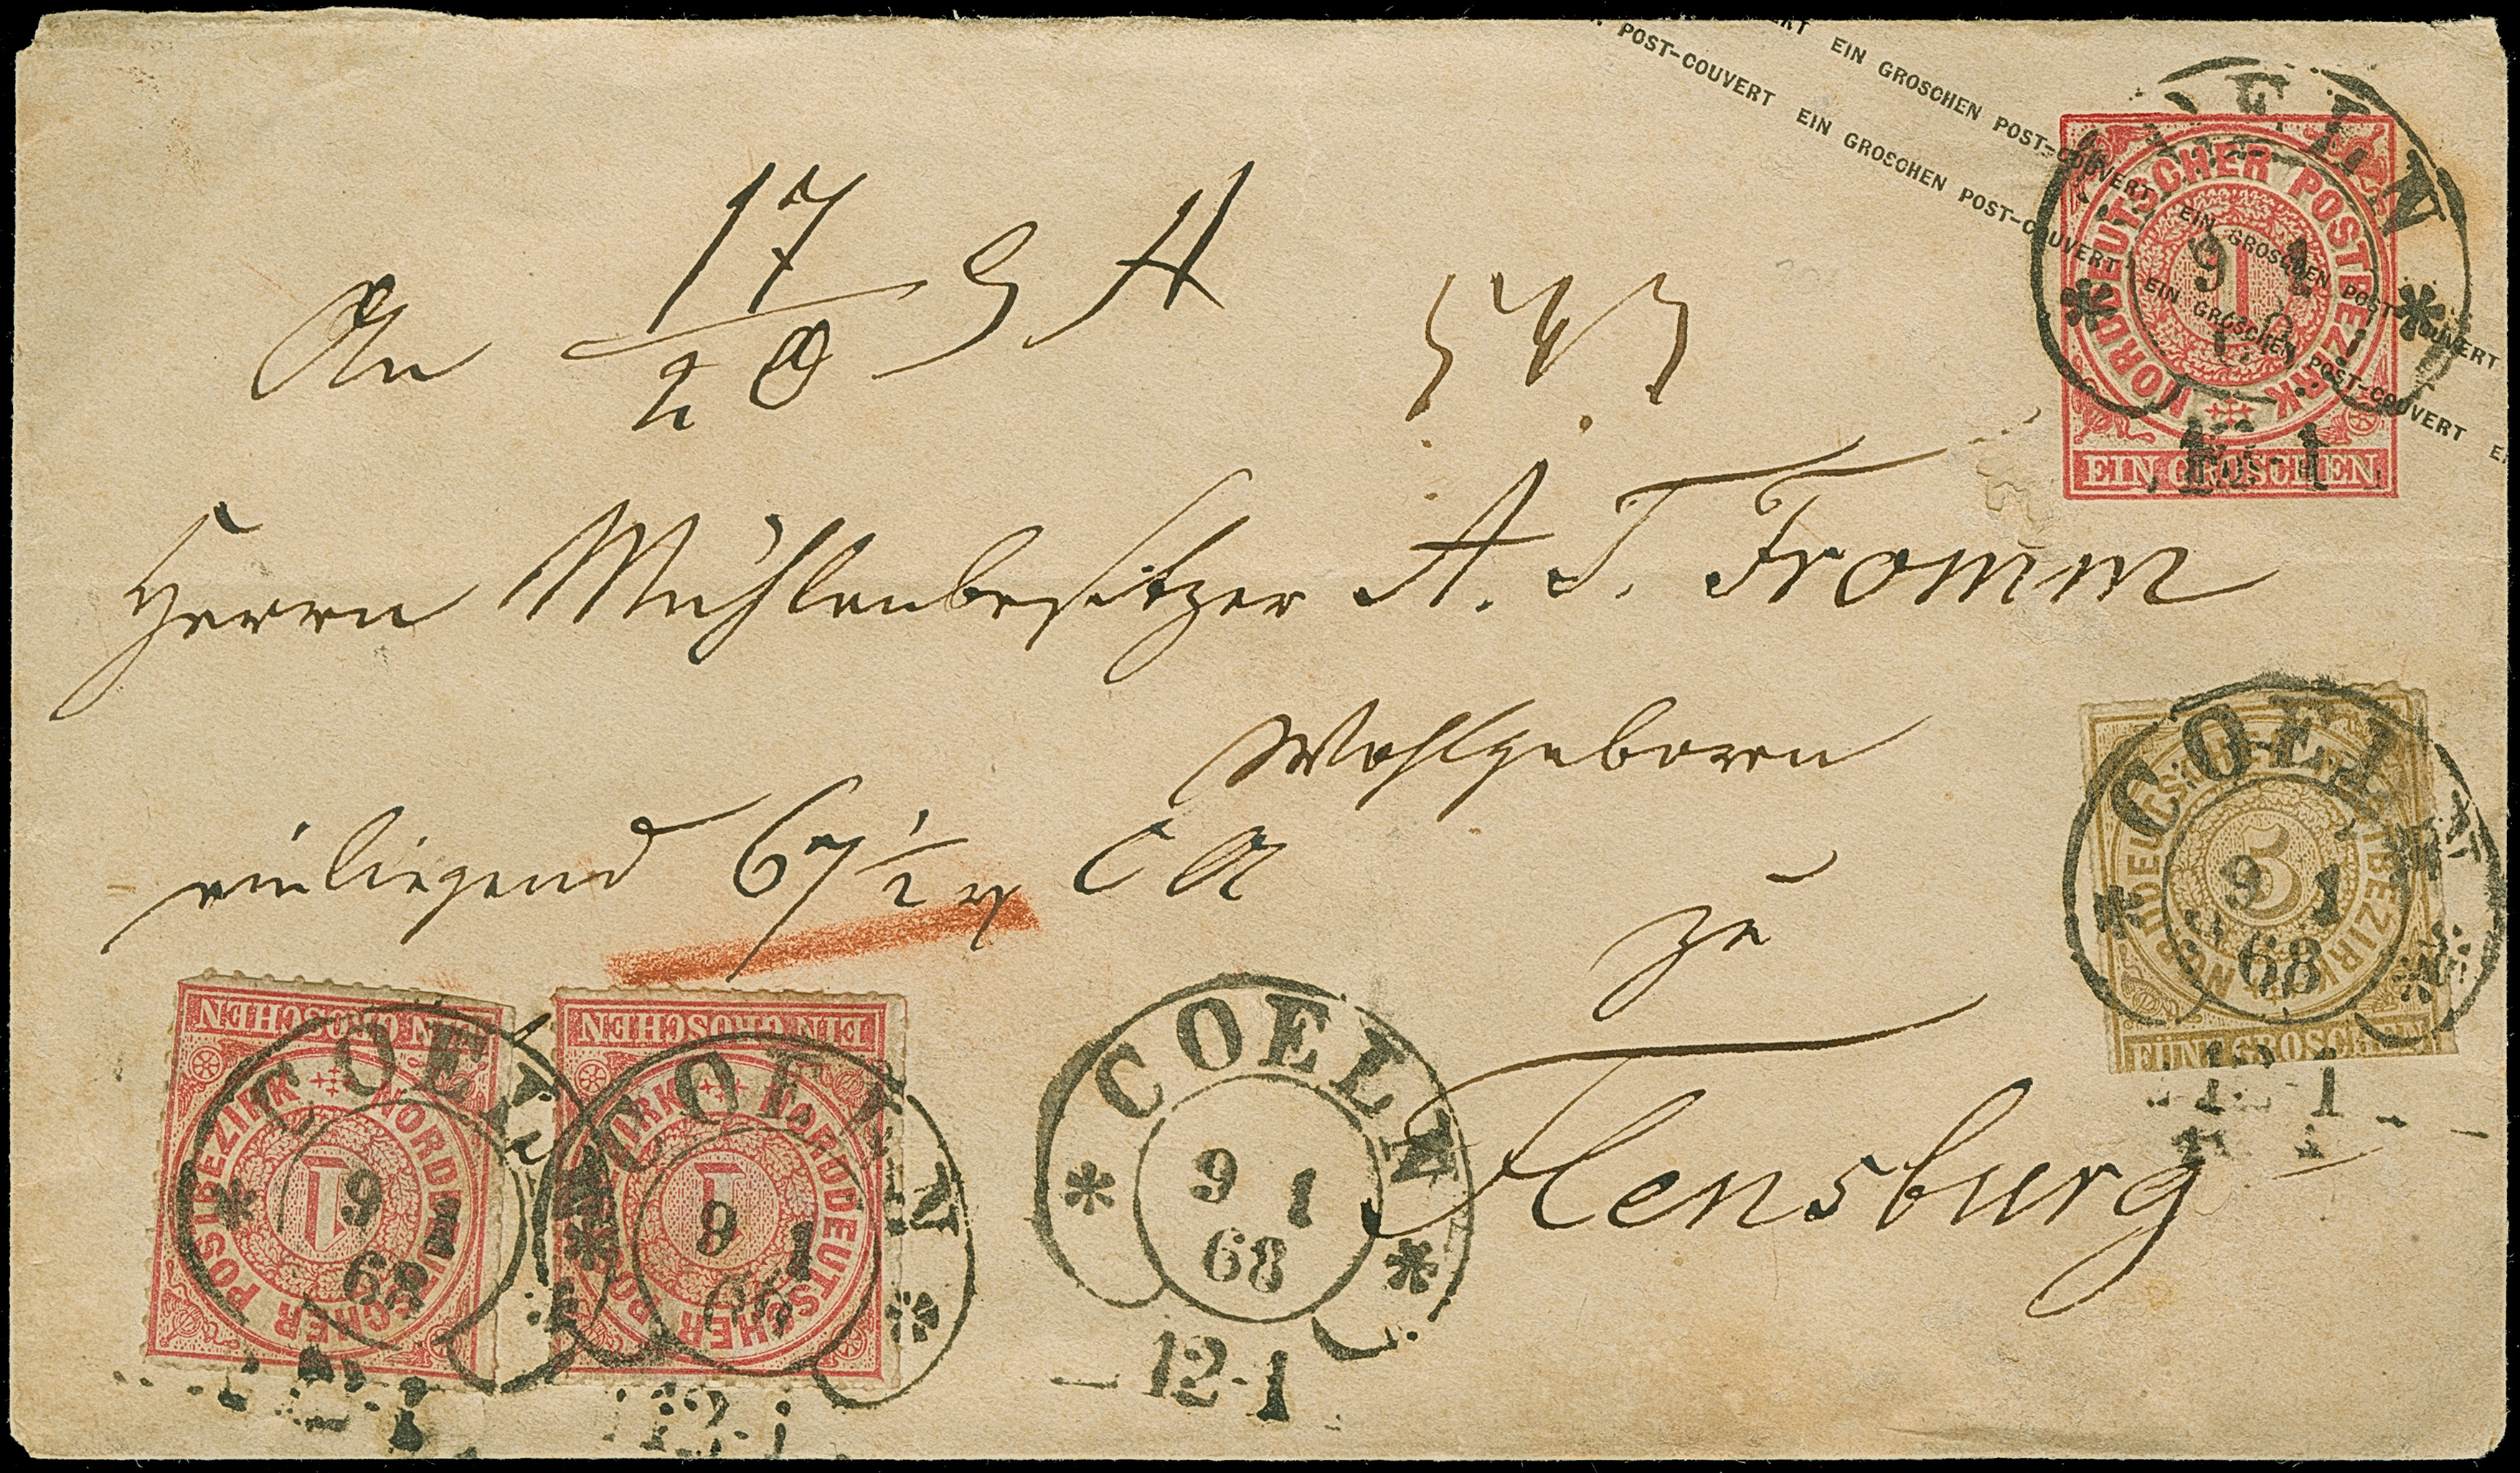 EIN GROSCHEN POST-COUVERT EIN GROSCHEN POST-COUVERT
POST-COUVERT EIN GROSCHEN POST-COUVERT EIN GROSCHEN POST-COUVERT
NORDDEUTSCHER POSTBEZIRK
1
EIN GROSCHEN
9 1
12-1
An
17
20
Herrn Mühlenbesitzer A. T. Fromm
Wohlgeboren
einliegend 67 1/2
zu
Flensburg
COELN
9 1
68
12-1
NORDDEUTSCHER POSTBEZIRK
5
FÜNF GROSCHEN
EIN GROSCHEN
NORDDEUTSCHER POSTBEZIRK
1
COELN
9 1
68
EIN GROSCHEN
NORDDEUTSCHER POSTBEZIRK
1
COELN
9 1
68
12-1
COELN
9 1
68
12-1